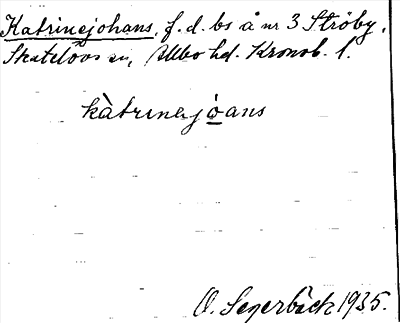 Katrinejohans, f. d. bs å nr 3 Ströby,
Skatelövs sn, Allbo hd. Kronob. l.
kàtrinajo̲ans
O. Segerbäck 1935.